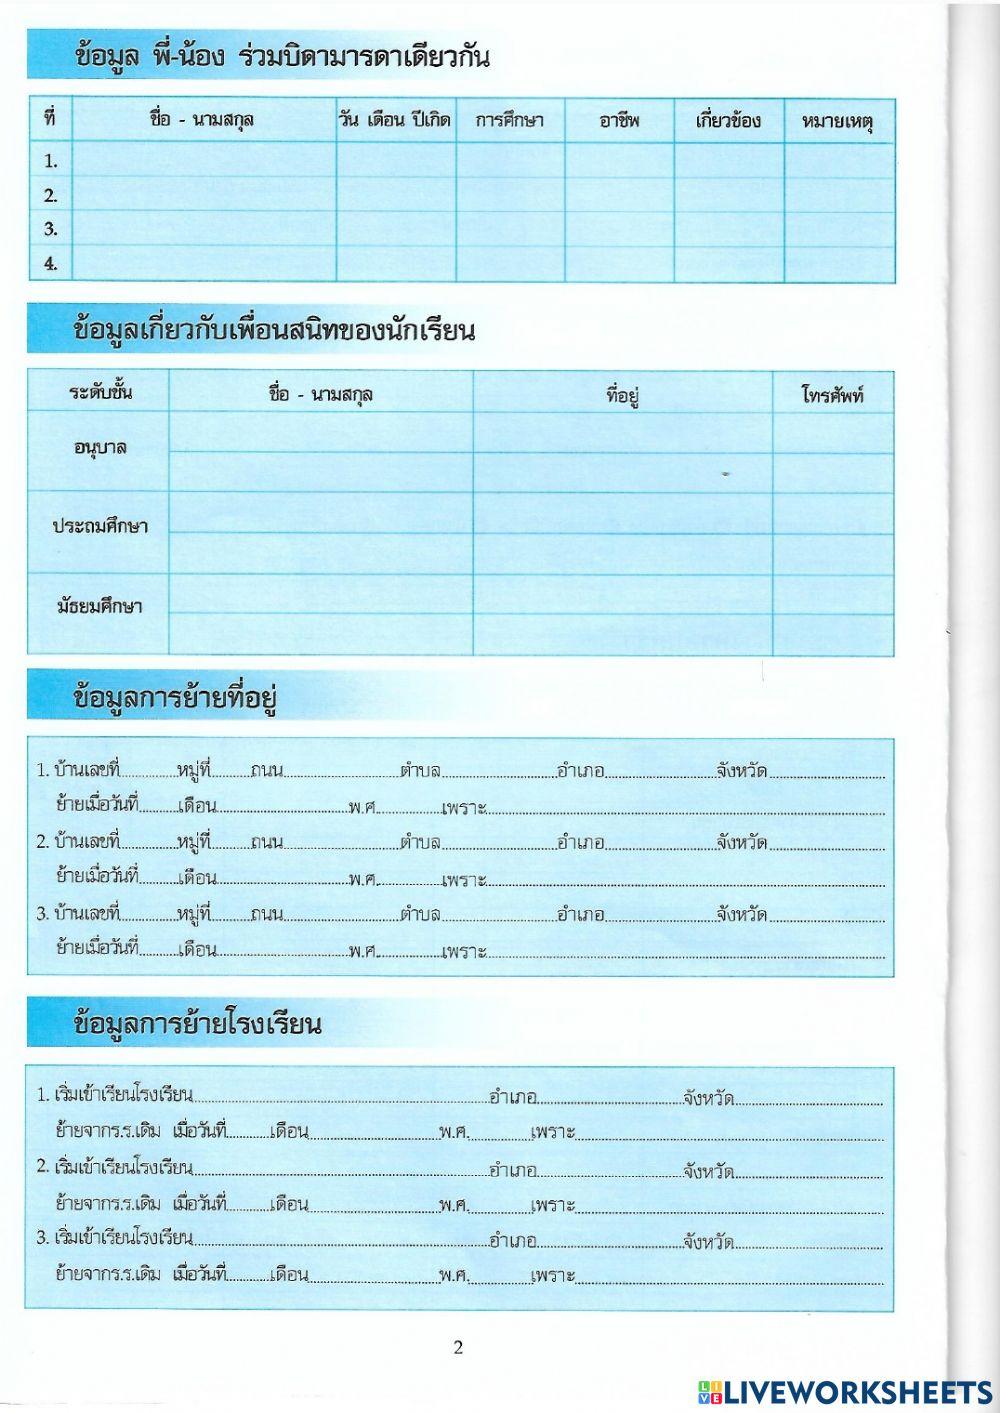 ข้อมูล พี่-น้อง ร่วมบิดามารดาเดียวกัน
ที่ ชื่อ - นามสกุล วัน เดือน ปีเกิด การศึกษา อาชีพ เกี่ยวข้อง หมายเหตุ
1.
2.
3.
4.
ข้อมูลเกี่ยวกับเพื่อนสนิทของนักเรียน
ระดับชั้น ชื่อ - นามสกุล ที่อยู่ โทรศัพท์
อนุบาล
ประถมศึกษา
มัธยมศึกษา
ข้อมูลการย้ายที่อยู่
1. บ้านเลขที่............หมู่ที่........ถนน........................ตำบล........................อำเภอ........................จังหวัด........................
ย้ายเมื่อวันที่........เดือน............................พ.ศ..............เพราะ................................................................
2. บ้านเลขที่............หมู่ที่........ถนน........................ตำบล........................อำเภอ........................จังหวัด........................
ย้ายเมื่อวันที่........เดือน............................พ.ศ..............เพราะ................................................................
3. บ้านเลขที่............หมู่ที่........ถนน........................ตำบล........................อำเภอ........................จังหวัด........................
ย้ายเมื่อวันที่........เดือน............................พ.ศ..............เพราะ................................................................
ข้อมูลการย้ายโรงเรียน
1. เริ่มเข้าเรียนโรงเรียน................................................................อำเภอ................................จังหวัด................................
ย้ายจากร.ร.เดิม เมื่อวันที่.........เดือน............................พ.ศ..............เพราะ................................................................
2. เริ่มเข้าเรียนโรงเรียน................................................................อำเภอ................................จังหวัด................................
ย้ายจากร.ร.เดิม เมื่อวันที่.........เดือน............................พ.ศ..............เพราะ................................................................
3. เริ่มเข้าเรียนโรงเรียน................................................................อำเภอ................................จังหวัด................................
ย้ายจากร.ร.เดิม เมื่อวันที่.........เดือน............................พ.ศ..............เพราะ................................................................
2
LIVE LIVEWORKSHEETS